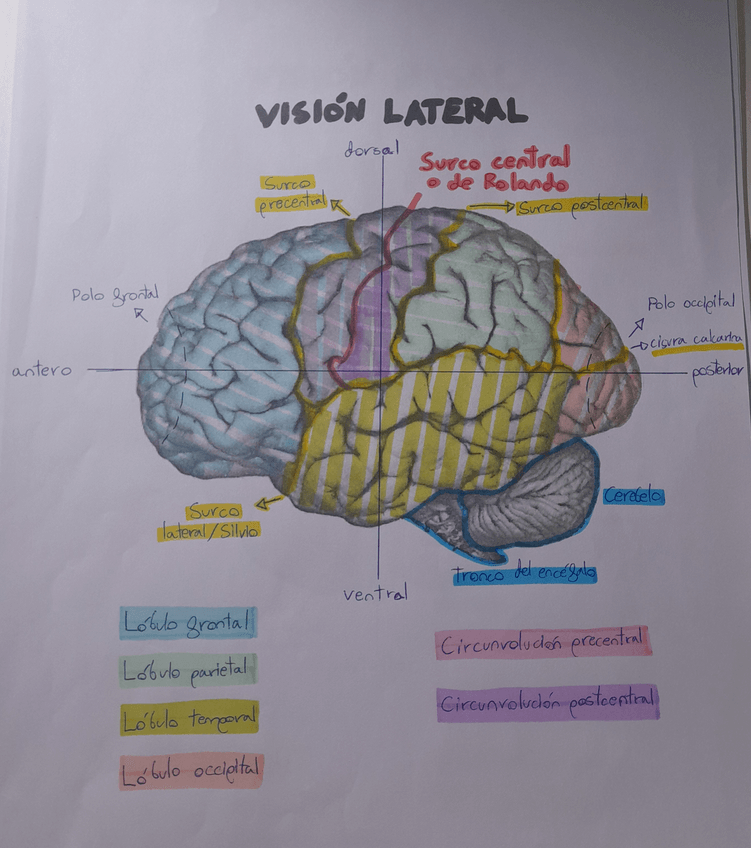 VISIÓN LATERAL
dorsal
Surco central
o de Rolando
Surco
precentral
Surco postcentral
Polo frontal
Polo occipital
cisura calcarina
antero
posterior
Surco
lateral/Silvio
Cerebelo
Tronco del encéfalo
ventral
Lóbulo frontal
Lóbulo parietal
Lóbulo temporal
Lóbulo occipital
Circunvolución precentral
Circunvolución postcentral